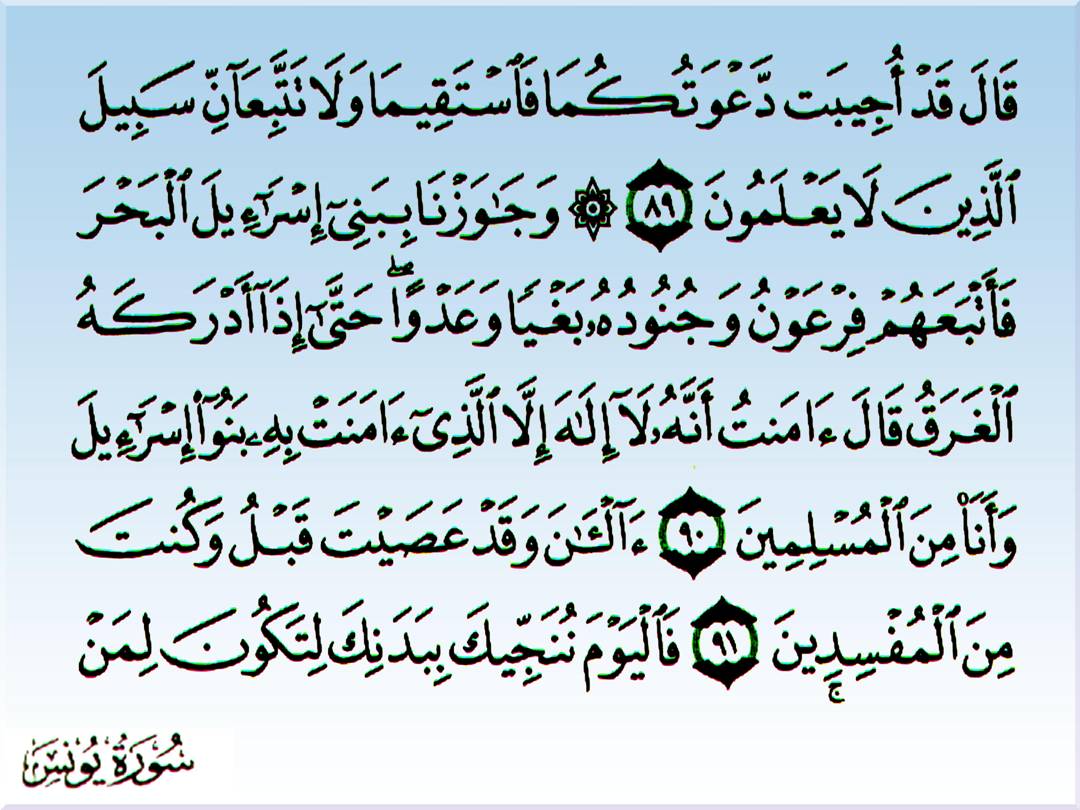 قَالَ قَدْ أُجِيبَت دَّعْوَتُكُمَا فَٱسْتَقِيمَا وَلَا تَتَّبِعَآنِّ سَبِيلَ
ٱلَّذِينَ لَا يَعْلَمُونَ ٨٩ ۞ وَجَٰوَزْنَا بِبَنِىٓ إِسْرَٰٓءِيلَ ٱلْبَحْرَ
فَأَتْبَعَهُمْ فِرْعَوْنُ وَجُنُودُهُۥ بَغْيًا وَعَدْوًا ۖ حَتَّىٰٓ إِذَآ أَدْرَكَهُ
ٱلْغَرَقُ قَالَ ءَامَنتُ أَنَّهُۥ لَآ إِلَٰهَ إِلَّا ٱلَّذِىٓ ءَامَنَتْ بِهِۦ بَنُوٓا۟ إِسْرَٰٓءِيلَ
وَأَنَا۠ مِنَ ٱلْمُسْلِمِينَ ٩٠ ءَآلْـَٰٔنَ وَقَدْ عَصَيْتَ قَبْلُ وَكُنتَ
مِنَ ٱلْمُفْسِدِينَ ٩١ فَٱلْيَوْمَ نُنَجِّيكَ بِبَدَنِكَ لِتَكُونَ لِمَنْ
سُورَةُ يُونُسَ